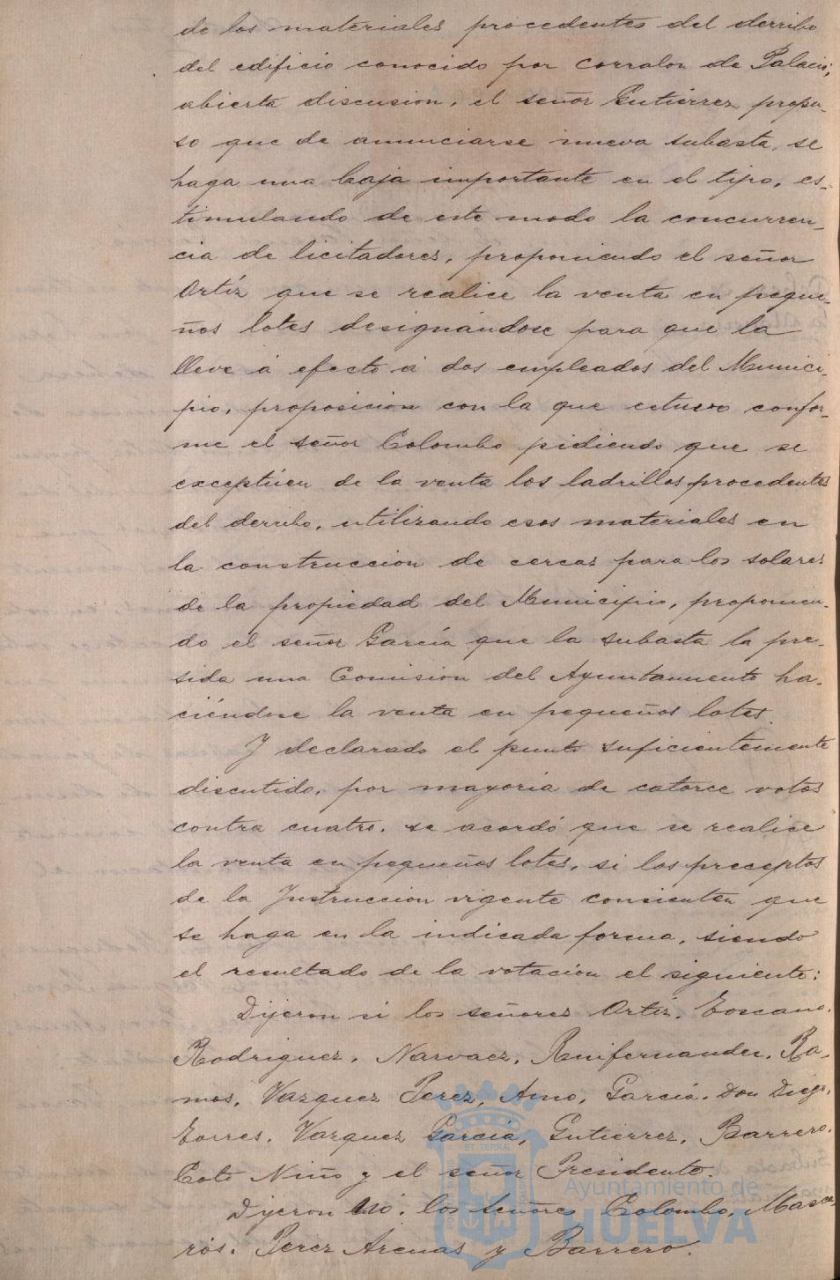 de los materiales procedentes del derribo
del edificio conocido por corralon de Palacio,
abierta discusion, el señor Gutierrez propu-
so que de anunciarse nueva subasta, se
haga una baja importante en el tipo, es-
timulando de este modo la concurren-
cia de licitadores, proponiendo el señor
Ortíz que se realice la venta en peque-
ños lotes designándose para que la
lleve á efecto á dos empleados del Munici-
pio, proposicion con la que estuvo confor-
me el señor Colombo pidiendo que se
exceptúen de la venta los ladrillos procedentes
del derribo, utilizando esos materiales en
la construccion de cercas para los solares
de la propiedad del Municipio, proponien-
do el señor García que la subasta la pre-
sida una Comision del Ayuntamiento ha-
ciéndose la venta en pequeños lotes.
Y declarado el punto suficientemente
discutido, por mayoría de catorce votos
contra cuatro, se acordó que se realice
la venta en pequeños lotes, si los preceptos
de la Instruccion vigente consienten que
se haga en la indicada forma, siendo
el resultado de la votacion el siguiente:
Dijeron si los señores Ortíz, Toscano,
Rodriguez, Narvaez, Ruifernandez, Ra-
mos, Vazquez Perez, Amo, García, Don Diego,
Torres, Vazquez García, Gutierrez, Barrero,
Coto Niño y el señor Presidente.
Dijeron no: los señores Colombo, Masca-
rós, Perez Arenas y Barrero.
Ayuntamiento de
HUELVA